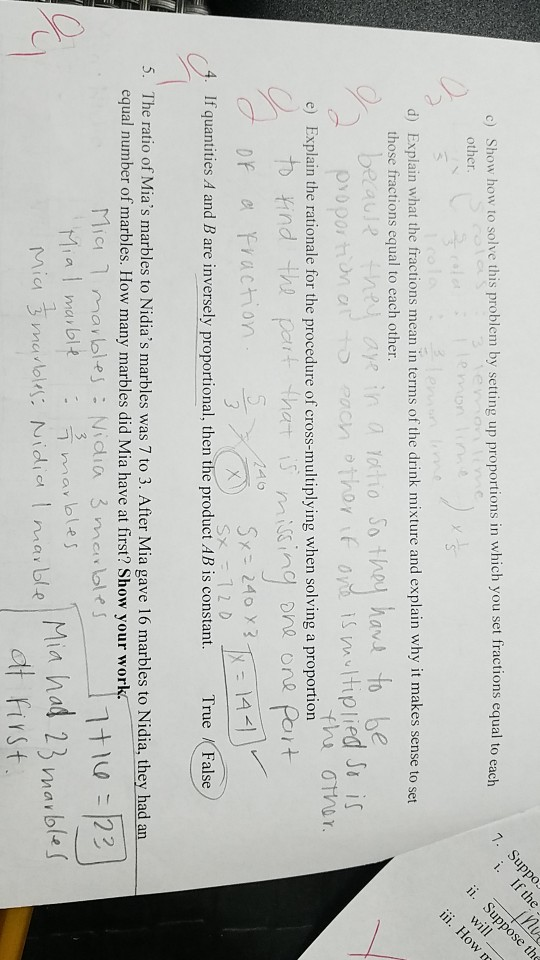 c) Show how to solve this problem by setting up proportions in which you set fractions equal to each
other.
1 cola :
lemon lime
d) Explain what the fractions mean in terms of the drink mixture and explain why it makes sense to set
those fractions equal to each other.
because they are in a ratio so they have to be
proportional to each other if one is multiplied so is
the other.
e) Explain the rationale for the procedure of cross-multiplying when solving a proportion
to find the part that is missing one one part
of a fraction.
5/3 240/x
5x = 240 x 3
5x = 720
x = 144 ✓
4. If quantities A and B are inversely proportional, then the product AB is constant. True / False
5. The ratio of Mia's marbles to Nidia's marbles was 7 to 3. After Mia gave 16 marbles to Nidia, they had an
equal number of marbles. How many marbles did Mia have at first? Show your work.
Mia 7 marbles : Nidia 3 marbles
7 + 16 = 23
Mia 1 marble : 3/7 marbles
Mia 7/3 marbles : Nidia 1 marble
Mia had 23 marbles
at first.
7. Suppo
i. If the
ii. Suppose the
will
iii. How m